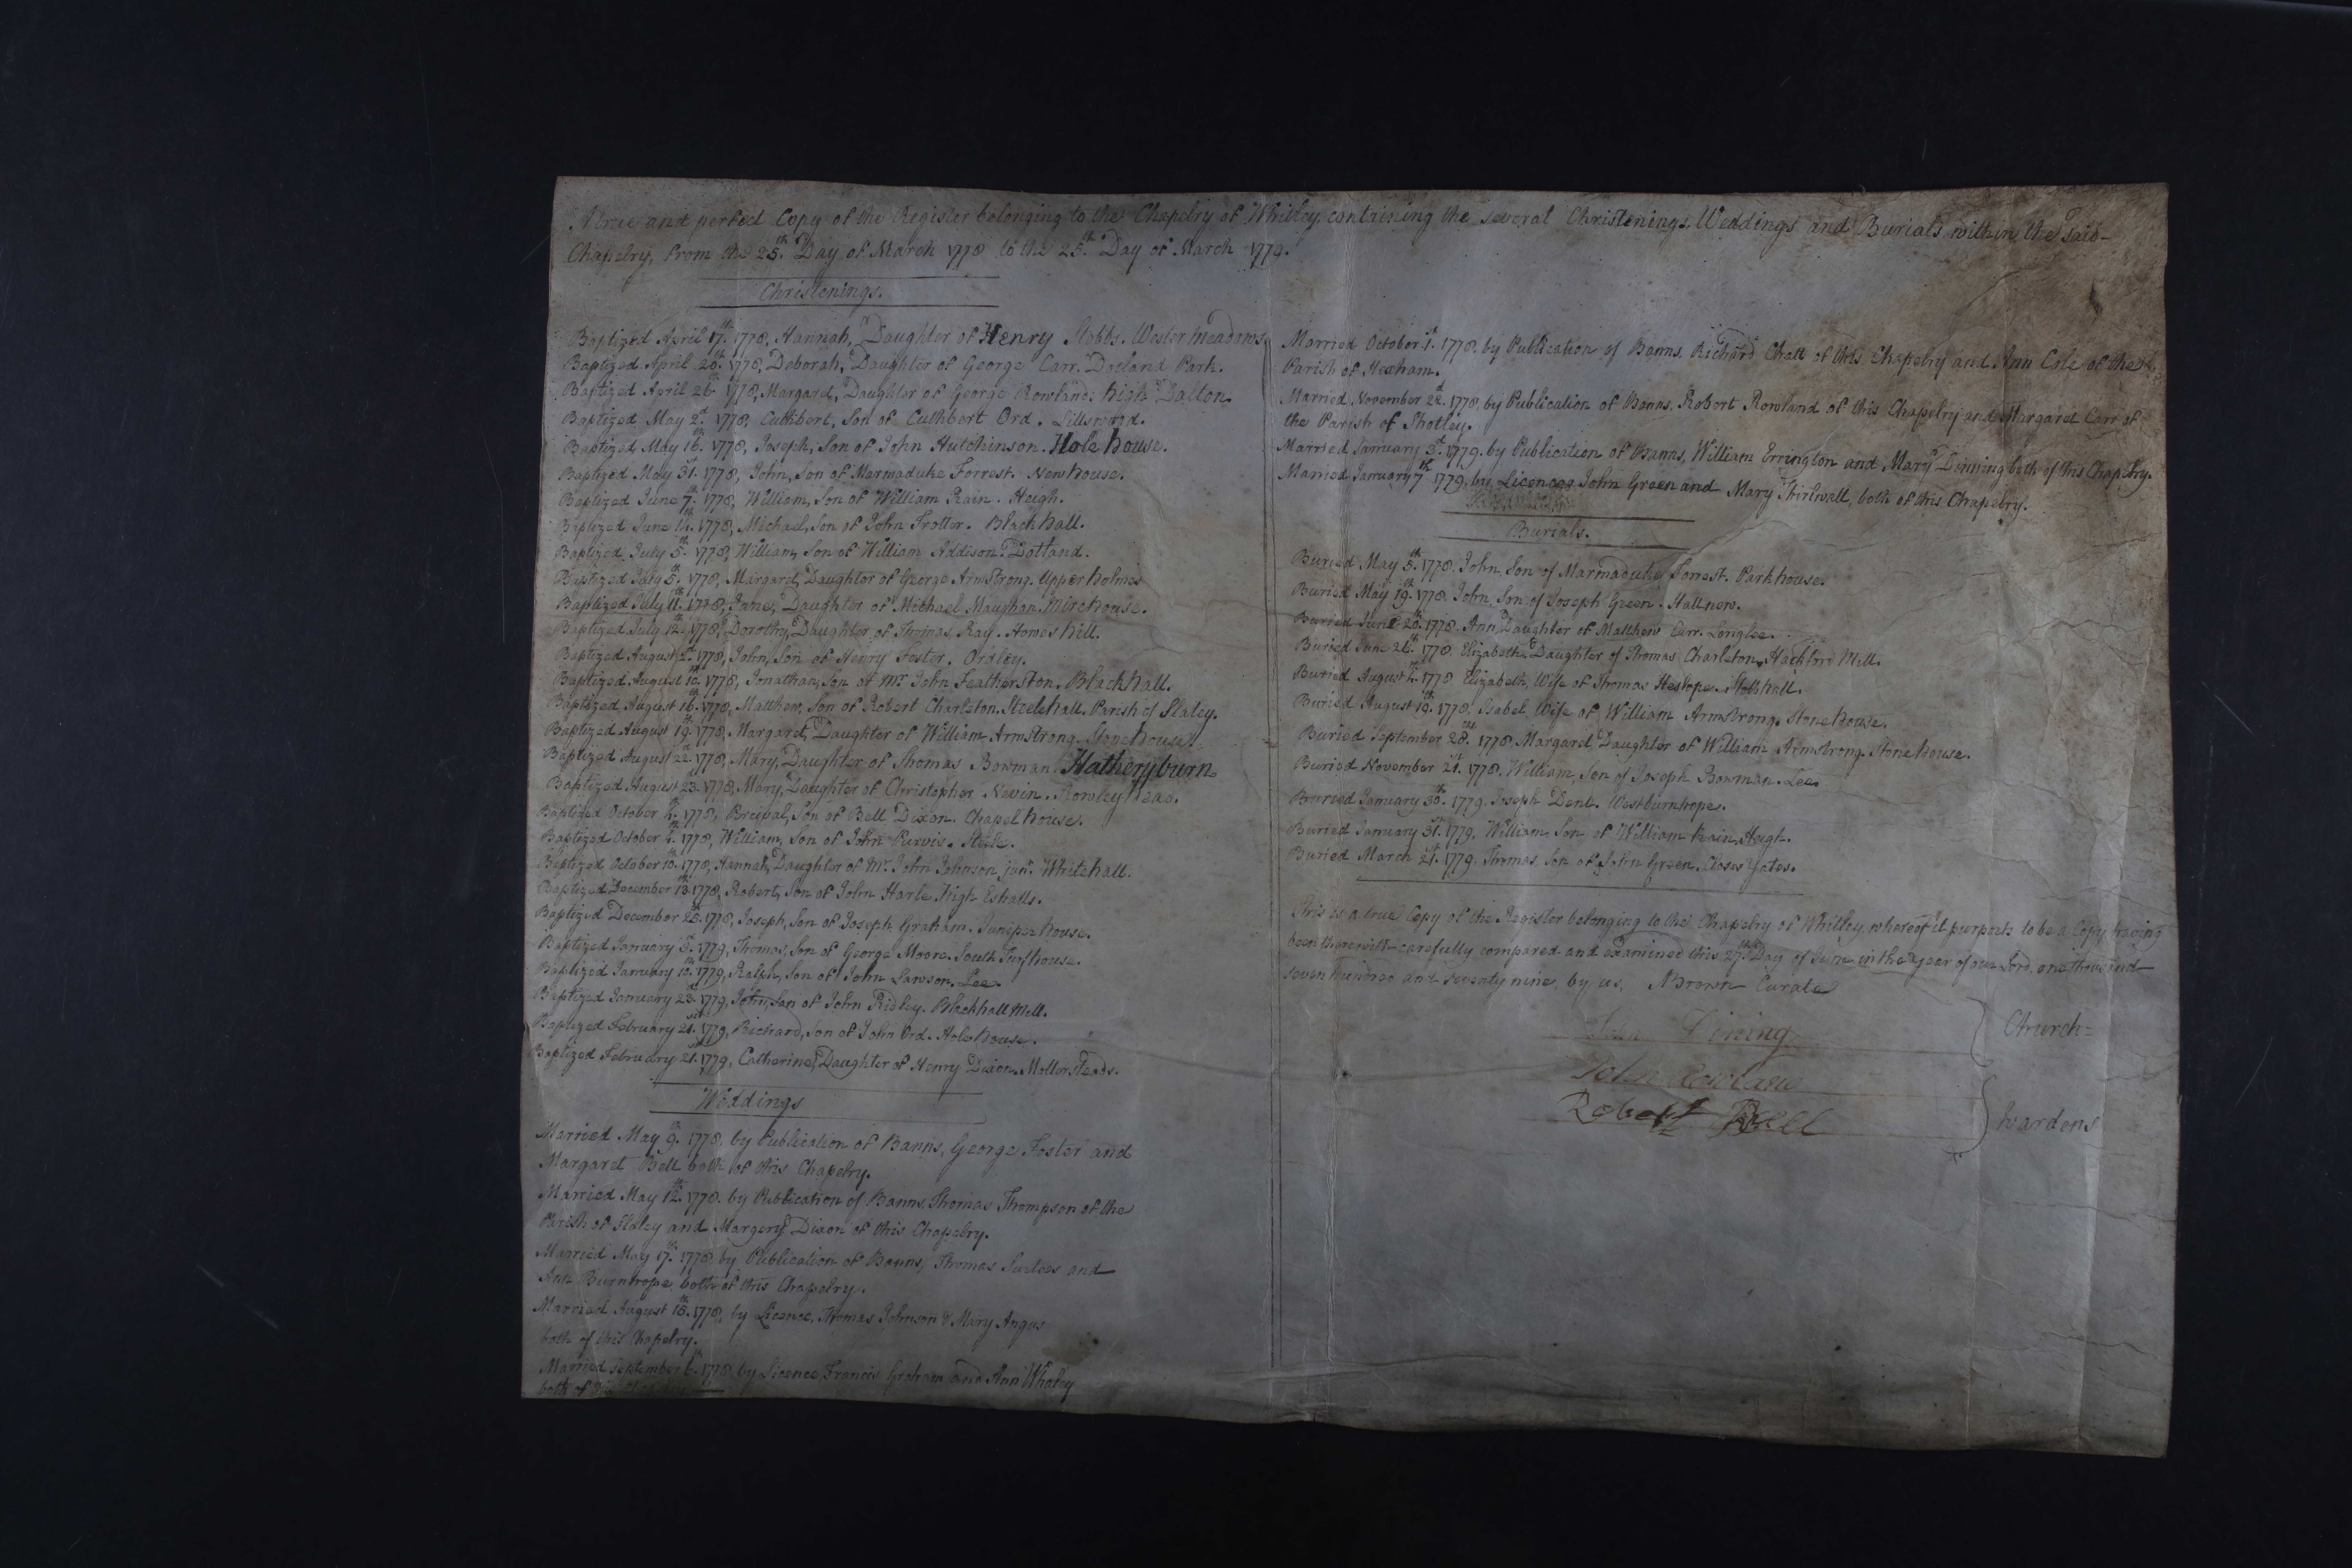 A true and perfect Copy of the Register belonging to the Chapelry of Whitley, containing the several Christenings, Weddings and Burials within the said
Chapelry, from the 25th. Day of March 1778 to the 25th. Day of March 1779.
Christenings.
Baptized April 17th. 1778, Hannah, Daughter of Henry Stobbs. Wester meadows.
Baptized April 20th. 1778, Deborah, Daughter of George Carr. Dotland Park.
Baptized April 26th. 1778, Margaret, Daughter of George Rowland. high Dalton.
Baptized May 2d. 1778, Cuthbert, Son of Cuthbert Ord. Lillswood.
Baptized May 16th. 1778, Joseph, Son of John Hutchinson. Hole house.
Baptized May 31st. 1778, John, Son of Marmaduke Forrest. Newhouse.
Baptized June 7th. 1778, William, Son of William Rain. Heigh.
Baptized June 14th. 1778, Michael, Son of John Trotter. Blackhall.
Baptized July 5th. 1778, William, Son of William Addison. Dotland.
Baptized July 5th. 1778, Margaret, Daughter of George Armstrong. Upper holmes
Baptized July 11th. 1778, Jane, Daughter of Michael Maughan. Mirehouse.
Baptized July 12th. 1778, Dorothy, Daughter of Thomas Ray. Homes hill.
Baptized August 2d. 1778, John, Son of Henry Foster. Ordley.
Baptized August 10th. 1778, Jonathan, Son of Mr. John Featherston. Blackhall.
Baptized August 16th. 1778, Matthew, Son of Robert Charlston. Steelehall. Parish of Slaley.
Baptized August 19th. 1778, Margaret, Daughter of William Armstrong. Stonehouse.
Baptized August 22d. 1778, Mary, Daughter of Thomas Bowman. Hatheryburn.
Baptized August 23d. 1778, Mary, Daughter of Christopher Nevin. Rowley head.
Baptized October 4th. 1778, Percival, Son of Bell Dixon. Chapel house.
Baptized October 4th. 1778, William, Son of John Purvis. Steele.
Baptized October 10th. 1778, Hannah, Daughter of Mr. John Johnson junr. Whitehall.
Baptized December 13th. 1778, Robert, Son of John Harle. high Eshalls.
Baptized December 28th. 1778, Joseph, Son of Joseph Graham. Juniper house.
Baptized January 3d. 1779, Thomas, Son of George Moore. South Turfhouse.
Baptized January 10th. 1779, Ralph, Son of John Lawson. Lee.
Baptized January 23d. 1779, John, Son of John Ridley. Blackhall Mill.
Baptized February 21st. 1779, Richard, Son of John Ord. Hole house.
Baptized February 21st. 1779, Catherine, Daughter of Henry Dixon. Mollersteads.
Weddings
Married May 9th. 1778, by Publication of Banns, George Foster and
Margaret Bell both of this Chapelry.
Married May 12th. 1778, by Publication of Banns, Thomas Thompson of the
Parish of Slaley and Margery Dixon of this Chapelry.
Married May 17th. 1778, by Publication of Banns, Thomas Surtees and
Ann Burnhope both of this Chapelry.
Married August 18th. 1778, by Licence, Thomas Johnson & Mary Angus
both of this Chapelry.
Married September 6th. 1778 by Licence Francis Graham and Ann Whaley
both of this Chapelry
Married October 1st. 1778, by Publication of Banns, Richard Chatt of this Chapelry and Ann Cole of the
Parish of Hexham.
Married November 22d. 1778, by Publication of Banns, Robert Rowland of this Chapelry and Margaret Carr of
the Parish of Shotley.
Married January 3d. 1779, by Publication of Banns, William Errington and Mary Dinning both of this Chapelry.
Married January 7th. 1779, by Licence John Green and Mary Thirlwall, both of this Chapelry.
Burials.
Buried May 5th. 1778. John, Son of Marmaduke Forrest. Parkhouse.
Buried May 19th. 1778. John, Son of Joseph Green. Hallnew.
Buried June 20th. 1778. Ann Daughter of Matthew Carr. Longlee.
Buried June 26th. 1778. Elizabeth, Daughter of Thomas Charlston. Hackford Mill.
Buried August 4th. 1778 Elizabeth, Wife of Thomas Heslope. Stobbhall.
Buried August 19th. 1778. Isabel, Wife of William Armstrong. Stonehouse.
Buried September 28th. 1778. Margaret, Daughter of William Armstrong. Stonehouse.
Buried November 21st. 1778. William, Son of Joseph Bowman. Lee.
Buried January 30th. 1779. Joseph Dent. Westburnhope.
Buried January 31st. 1779. William, Son of William Rain. Heigh.
Buried March 21st. 1779. Thomas, Son of John Green. Closes Yates.
This is a true Copy of the Register belonging to the Chapelry of Whitley, whereof it purports to be a Copy having
been therewith carefully compared and examined this 27th. Day of June in the year of our Lord, one thousand
seven hundred and seventy nine, by us, N Brown Curate
John Dining
John Rowland
Robert Bell
Church=
wardens